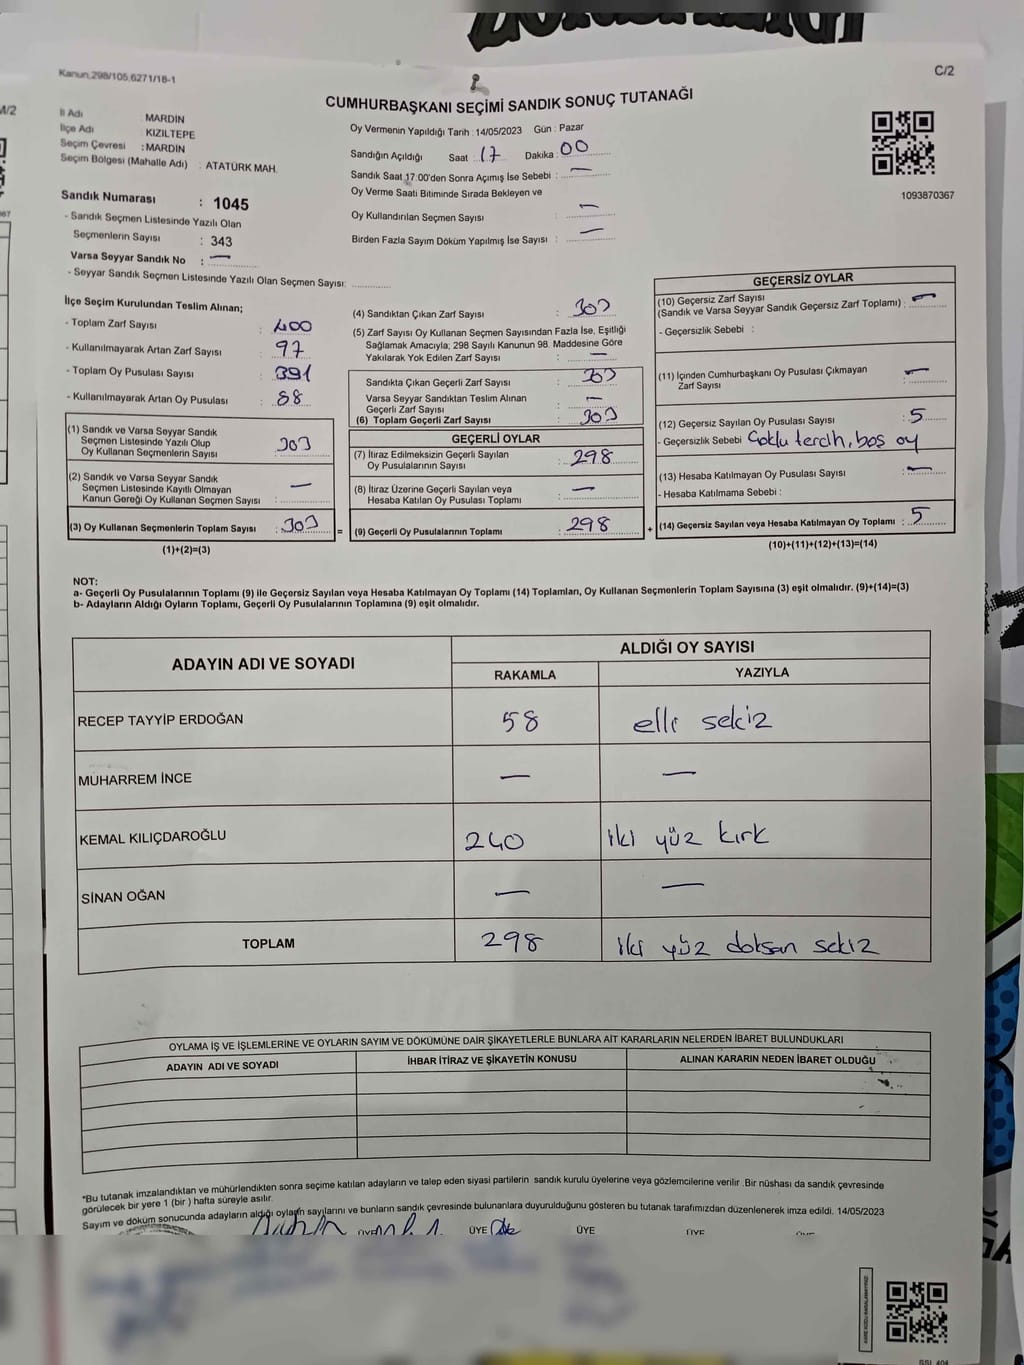 Kanun.298/105.6271/18-1
C/2
CUMHURBAŞKANI SEÇİMİ SANDIK SONUÇ TUTANAĞI
İl Adı : MARDİN
İlçe Adı : KIZILTEPE
Seçim Çevresi : MARDİN
Seçim Bölgesi (Mahalle Adı) : ATATÜRK MAH.
Oy Vermenin Yapıldığı Tarih : 14/05/2023 Gün : Pazar
Sandığın Açıldığı Saat : 17 Dakika : 00
Sandık Saat 17:00'den Sonra Açımış İse Sebebi : —
Oy Verme Saati Bitiminde Sırada Bekleyen ve
Oy Kullandırılan Seçmen Sayısı : —
Birden Fazla Sayım Döküm Yapılmış İse Sayısı : —
1093870367
Sandık Numarası : 1045
- Sandık Seçmen Listesinde Yazılı Olan
Seçmenlerin Sayısı : 343
Varsa Seyyar Sandık No : —
- Seyyar Sandık Seçmen Listesinde Yazılı Olan Seçmen Sayısı:
İlçe Seçim Kurulundan Teslim Alınan;
- Toplam Zarf Sayısı : 400
- Kullanılmayarak Artan Zarf Sayısı : 97
- Toplam Oy Pusulası Sayısı : 391
- Kullanılmayarak Artan Oy Pusulası : 88
(1) Sandık ve Varsa Seyyar Sandık
Seçmen Listesinde Yazılı Olup
Oy Kullanan Seçmenlerin Sayısı : 303
(2) Sandık ve Varsa Seyyar Sandık
Seçmen Listesinde Kayıtlı Olmayan
Kanun Gereği Oy Kullanan Seçmen Sayısı : —
(3) Oy Kullanan Seçmenlerin Toplam Sayısı : 303 =
(1)+(2)=(3)
(4) Sandıktan Çıkan Zarf Sayısı : 303
(5) Zarf Sayısı Oy Kullanan Seçmen Sayısından Fazla İse, Eşitliği
Sağlamak Amacıyla; 298 Sayılı Kanunun 98. Maddesine Göre
Yakılarak Yok Edilen Zarf Sayısı : —
Sandıkta Çıkan Geçerli Zarf Sayısı : 303
Varsa Seyyar Sandıktan Teslim Alınan
Geçerli Zarf Sayısı : —
(6) Toplam Geçerli Zarf Sayısı : 303
GEÇERLİ OYLAR
(7) İtiraz Edilmeksizin Geçerli Sayılan
Oy Pusulalarının Sayısı : 298
(8) İtiraz Üzerine Geçerli Sayılan veya
Hesaba Katılan Oy Pusulası Toplamı : —
(9) Geçerli Oy Pusulalarının Toplamı : 298 +
GEÇERSİZ OYLAR
(10) Geçersiz Zarf Sayısı
(Sandık ve Varsa Seyyar Sandık Geçersiz Zarf Toplamı) : —
- Geçersizlik Sebebi :
(11) İçinden Cumhurbaşkanı Oy Pusulası Çıkmayan
Zarf Sayısı : —
(12) Geçersiz Sayılan Oy Pusulası Sayısı : 5
- Geçersizlik Sebebi Çoklu tercih, boş oy
(13) Hesaba Katılmayan Oy Pusulası Sayısı : —
- Hesaba Katılmama Sebebi :
(14) Geçersiz Sayılan veya Hesaba Katılmayan Oy Toplamı : 5
(10)+(11)+(12)+(13)=(14)
NOT:
a- Geçerli Oy Pusulalarının Toplamı (9) ile Geçersiz Sayılan veya Hesaba Katılmayan Oy Toplamı (14) Toplamları, Oy Kullanan Seçmenlerin Toplam Sayısına (3) eşit olmalıdır. (9)+(14)=(3)
b- Adayların Aldığı Oyların Toplamı, Geçerli Oy Pusulalarının Toplamına (9) eşit olmalıdır.
ADAYIN ADI VE SOYADI
ALDIĞI OY SAYISI
RAKAMLA YAZIYLA
RECEP TAYYİP ERDOĞAN 58 elli sekiz
MUHARREM İNCE — —
KEMAL KILIÇDAROĞLU 240 iki yüz kırk
SİNAN OĞAN — —
TOPLAM 298 iki yüz doksan sekiz
OYLAMA İŞ VE İŞLEMLERİNE VE OYLARIN SAYIM VE DÖKÜMÜNE DAİR ŞİKAYETLERLE BUNLARA AİT KARARLARIN NELERDEN İBARET BULUNDUKLARI
ADAYIN ADI VE SOYADI İHBAR İTİRAZ VE ŞİKAYETİN KONUSU ALINAN KARARIN NEDEN İBARET OLDUĞU
*Bu tutanak imzalandıktan ve mühürlendikten sonra seçime katılan adayların ve talep eden siyasi partilerin sandık kurulu üyelerine veya gözlemcilerine verilir .Bir nüshası da sandık çevresinde
görülecek bir yere 1 (bir ) hafta süreyle asılır.
Sayım ve döküm sonucunda adayların aldığı oyların sayılarını ve bunların sandık çevresinde bulunanlara duyurulduğunu gösteren bu tutanak tarafımızdan düzenlenerek imza edildi. 14/05/2023
ÜYE ÜYE ÜYE ÜYE